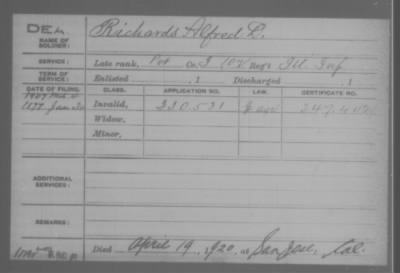 DEA.
NAME OF SOLDIER:
Richards Alfred L.
SERVICE:
Late rank, Pvt Co. I 102 Reg't Ill Inf
TERM OF SERVICE:
Enlisted , 1 Discharged , 1
DATE OF FILING. CLASS. APPLICATION NO. LAW. CERTIFICATE NO.
1877 Jan 20 Invalid, 230531
Widow,
Minor,
ADDITIONAL SERVICES:
REMARKS:
Died April 19, 1920, at San Jose, Cal.